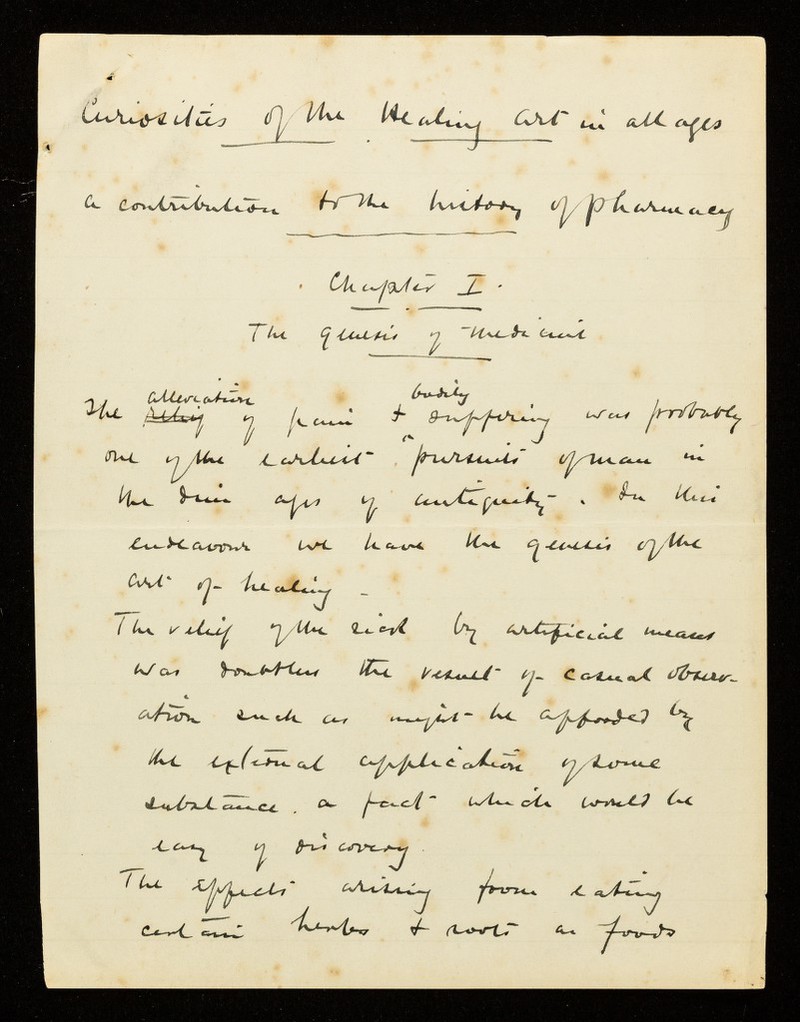 Curiosities of the Healing Art in all ages
a contribution to the history of pharmacy
Chapter I.
The genesis of medicine
alleviation bodily
The relief of pain & suffering was probably
one of the earliest pursuits of man in
the dim ages of antiquity. In this
endeavour we have the genesis of the
art of healing –
The relief of the sick by artificial means
was doubtless the result of casual observ-
ation such as might be afforded by
the external application of some
substance. a fact which would be
easy of discovery.
The effects arising from eating
certain herbs & roots as foods